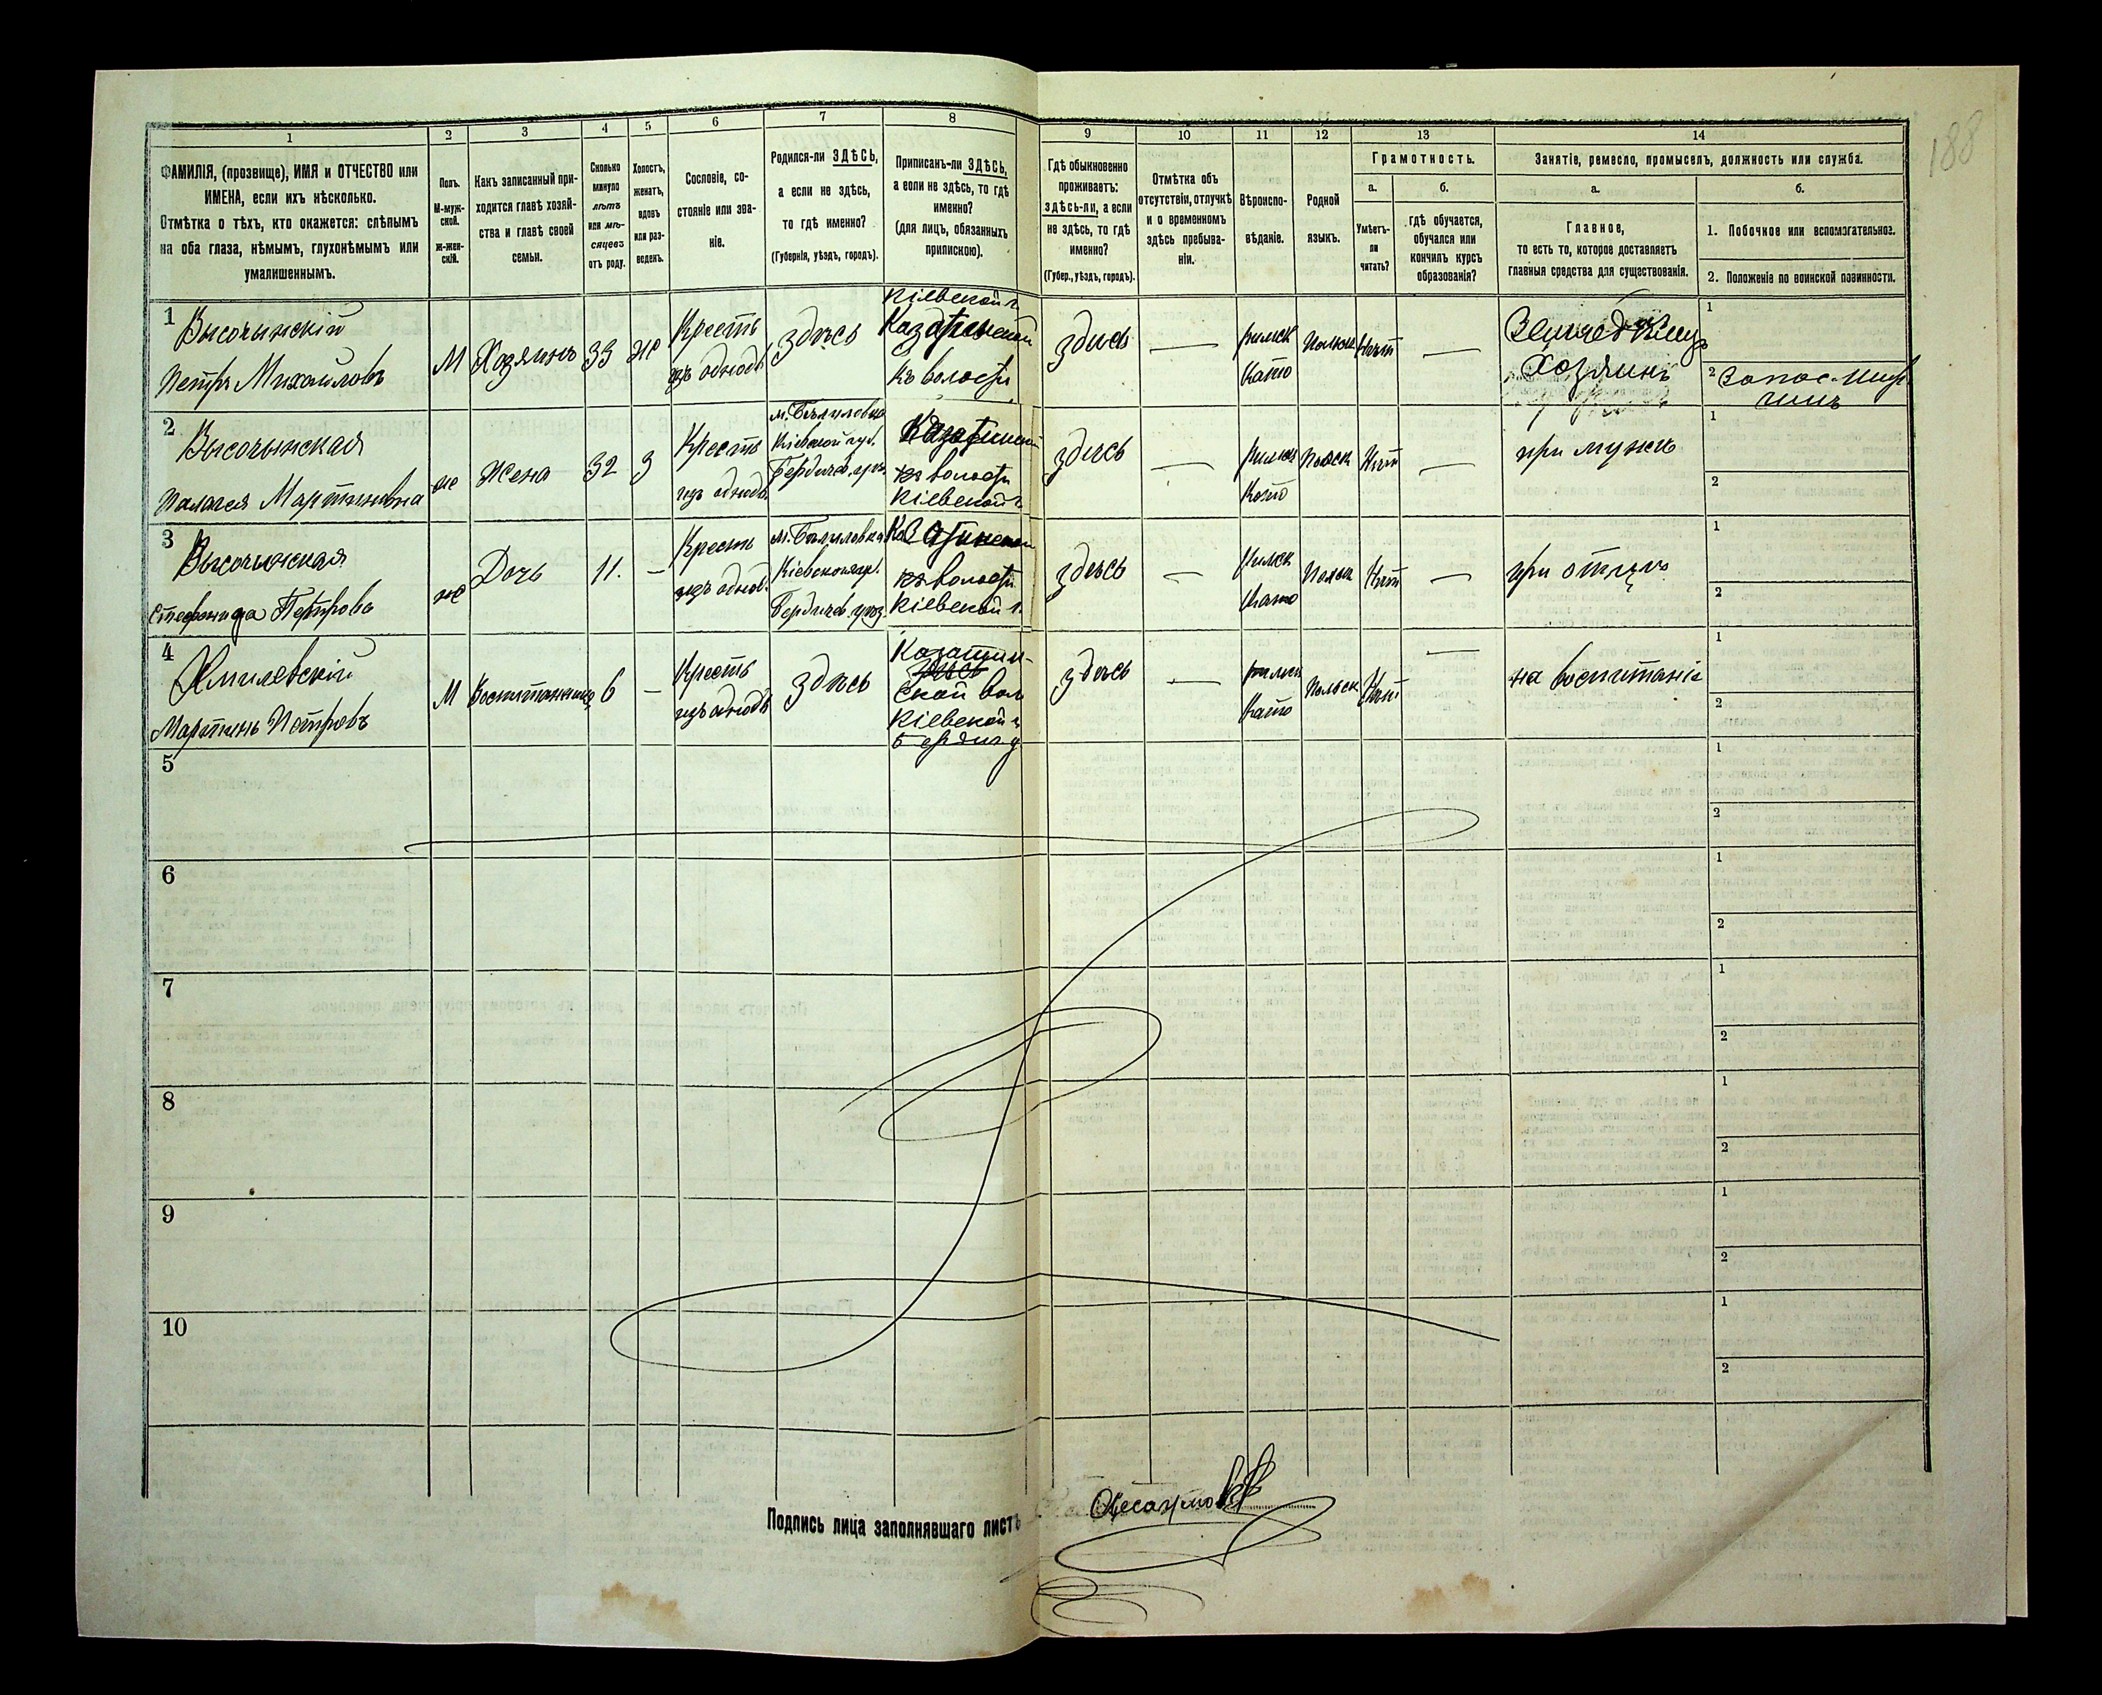 188
1
2
3
4
5
6
7
8
9
10
11
12
13
14
ФАМИЛІЯ, (прозвище), ИМЯ и ОТЧЕСТВО или
ИМЕНА, если ихъ нѣсколько.
Отмѣтка о тѣхъ, кто окажется: слѣпымъ
на оба глаза, нѣмымъ, глухонѣмымъ или
умалишеннымъ.
Полъ.
М-муж-
ской.
ж-жен-
скій.
Какъ записанный при-
ходится главѣ хозяй-
ства и главѣ своей
семьи.
Сколько
минуло
лѣтъ
или мѣ-
сяцевъ
отъ роду.
Холостъ,
женатъ,
вдовъ
или раз-
веденъ.
Сословіе, со-
стояніе или зва-
ніе.
Родился-ли ЗДѢСЬ,
а если не здѣсь,
то гдѣ именно?
(Губернія, уѣздъ, городъ).
Приписанъ-ли ЗДѢСЬ,
а если не здѣсь, то гдѣ
именно?
(для лицъ, обязанныхъ
припискою).
Гдѣ обыкновенно
проживаетъ:
здѣсь-ли, а если
не здѣсь, то гдѣ
именно?
(Губер., уѣздъ, городъ).
Отмѣтка объ
отсутствіи, отлучкѣ
и о временномъ
здѣсь пребыва-
ніи.
Вѣроиспо-
вѣданіе.
Родной
языкъ.
Грамотность.
а.
б.
Умѣетъ-
ли
читать?
гдѣ обучается,
обучался или
кончилъ курсъ
образованія?
Занятіе, ремесло, промыселъ, должность или служба.
а.
б.
Главное,
то есть то, которое доставляетъ
главныя средства для существованія.
1. Побочное или вспомогательное.
2. Положеніе по воинской повинности.
1
Высочынскій
Петръ Михайловъ
М
Хозяинъ
33
же
Крестъ
изъ однод
здѣсь
Кіевской г.
Казатинской
къ волости
здѣсь
—
римск
Като
Польск
Нѣтъ
—
Хозяинъ
1
2
Запас.
2
Высочынская
Палагея Мартиновна
же
Жена
32
З
Крестъ
изъ однод
м. Бѣлиловка
Кіевской губ.
Бердичев. уѣз.
Казатинской
къ волости
Кіевской г.
здѣсь
—
римск
Като
Польск
Нѣтъ
—
при мужѣ
1
2
3
Высочынская
Стефанида Петрова
же
Дочь
11.
—
Крестъ
изъ однод.
м. Бѣлиловка
Кіевской гу.
Бердичев. уѣз.
Казатинской
къ волости
Кіевской г.
здѣсь
—
Римск
Като
Польск
Нѣтъ
—
при отцѣ
1
2
4
Хмилевскій
Мартинъ Петровъ
М
Воспитанникъ
6
—
Крестъ
изъ однод
здѣсь
Казатин-
здѣсь
ской вол
Кіевской г
Бердич у
здѣсь
—
римск
Като
Польск
Нѣтъ
—
на воспитаніи
1
2
5
1
2
6
1
2
7
1
2
8
1
2
9
1
2
10
1
2
Подпись лица заполнявшаго листъ